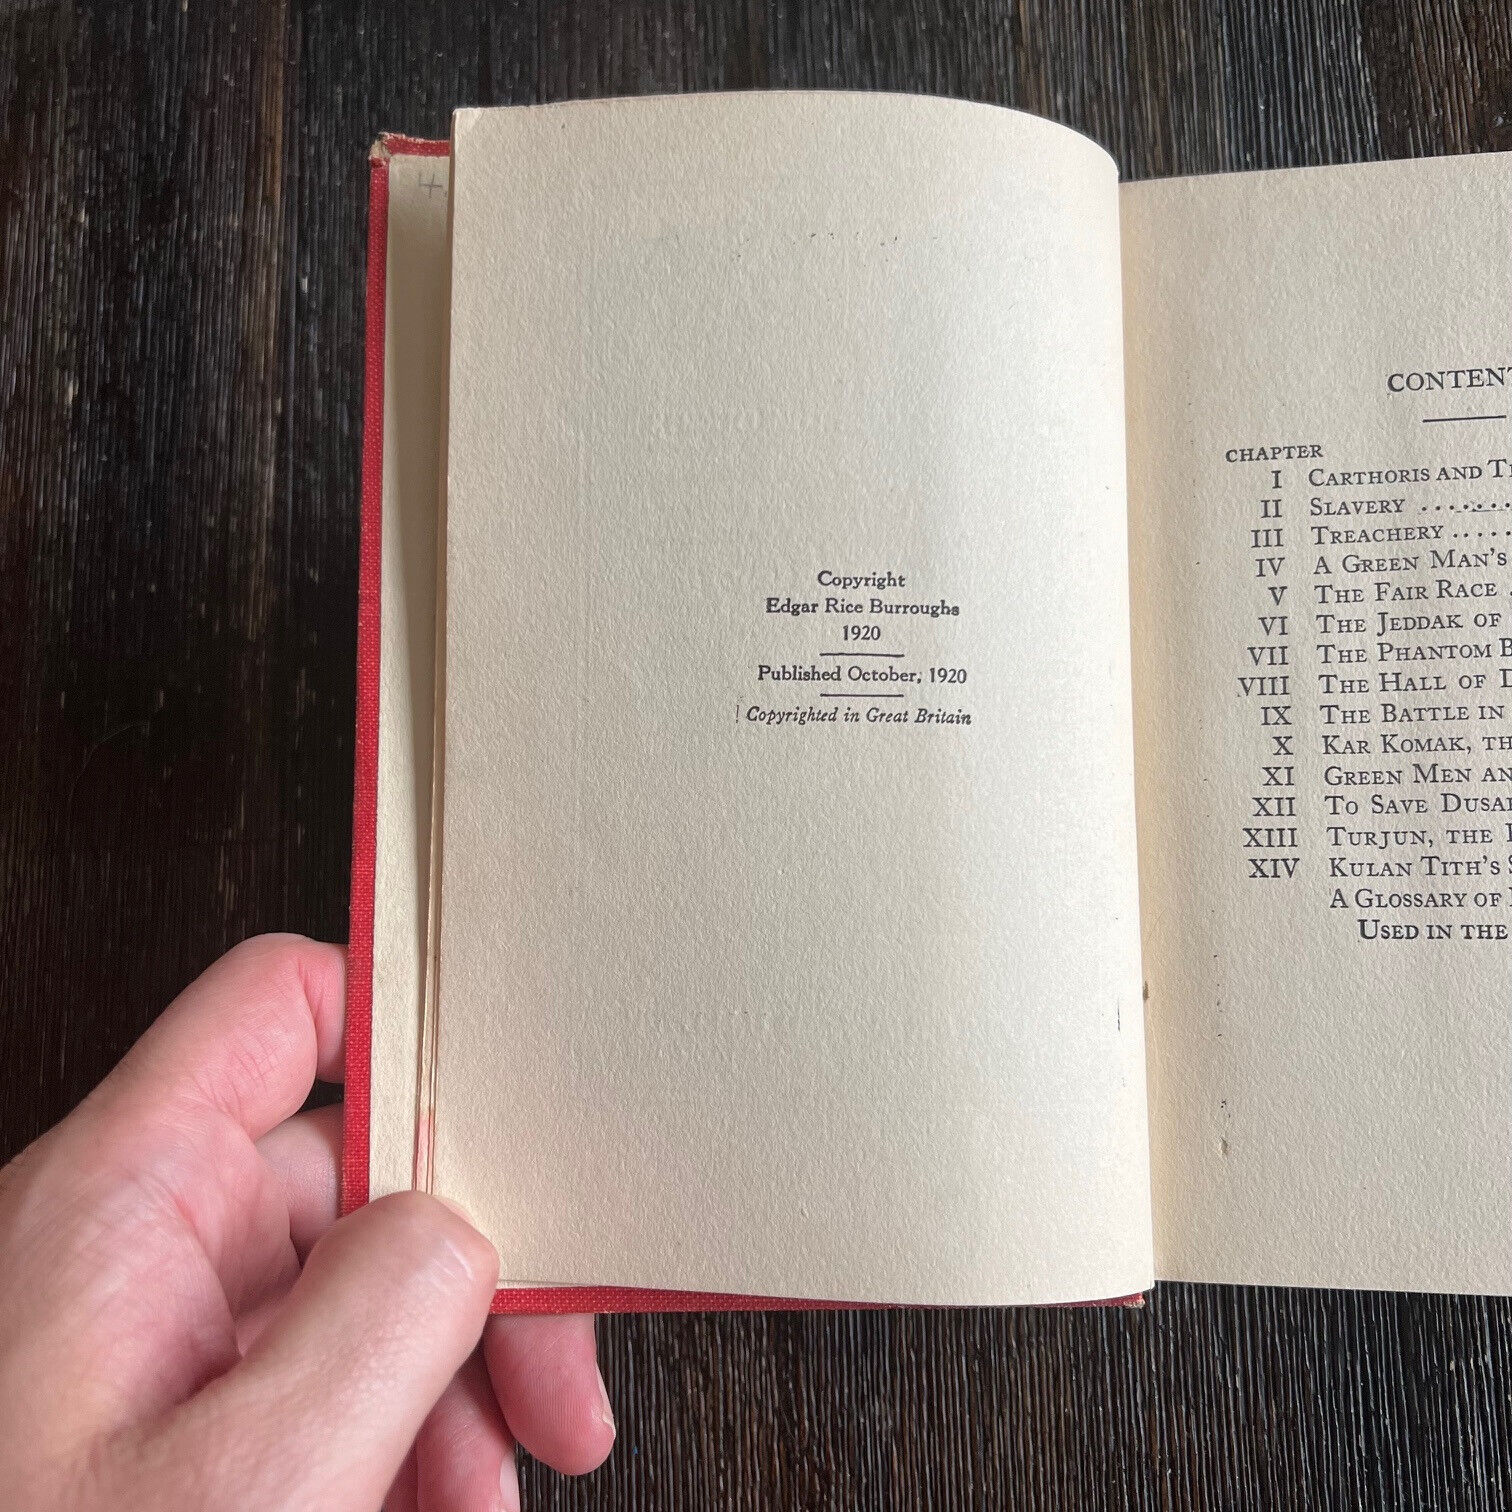 Copyright
Edgar Rice Burroughs
1920
Published October, 1920
Copyrighted in Great Britain
CHAPTER
I CARTHORIS AND
II SLAVERY ........
III TREACHERY .....
IV A GREEN MAN'S
V THE FAIR RACE
VI THE JEDDAK OF
VII THE PHANTOM
VIII THE HALL OF
IX THE BATTLE IN
X KAR KOMAK,
XI GREEN MEN
XII TO SAVE
XIII TURJUN, THE
XIV KULAN TITH'S
A GLOSSARY OF
USED IN THE